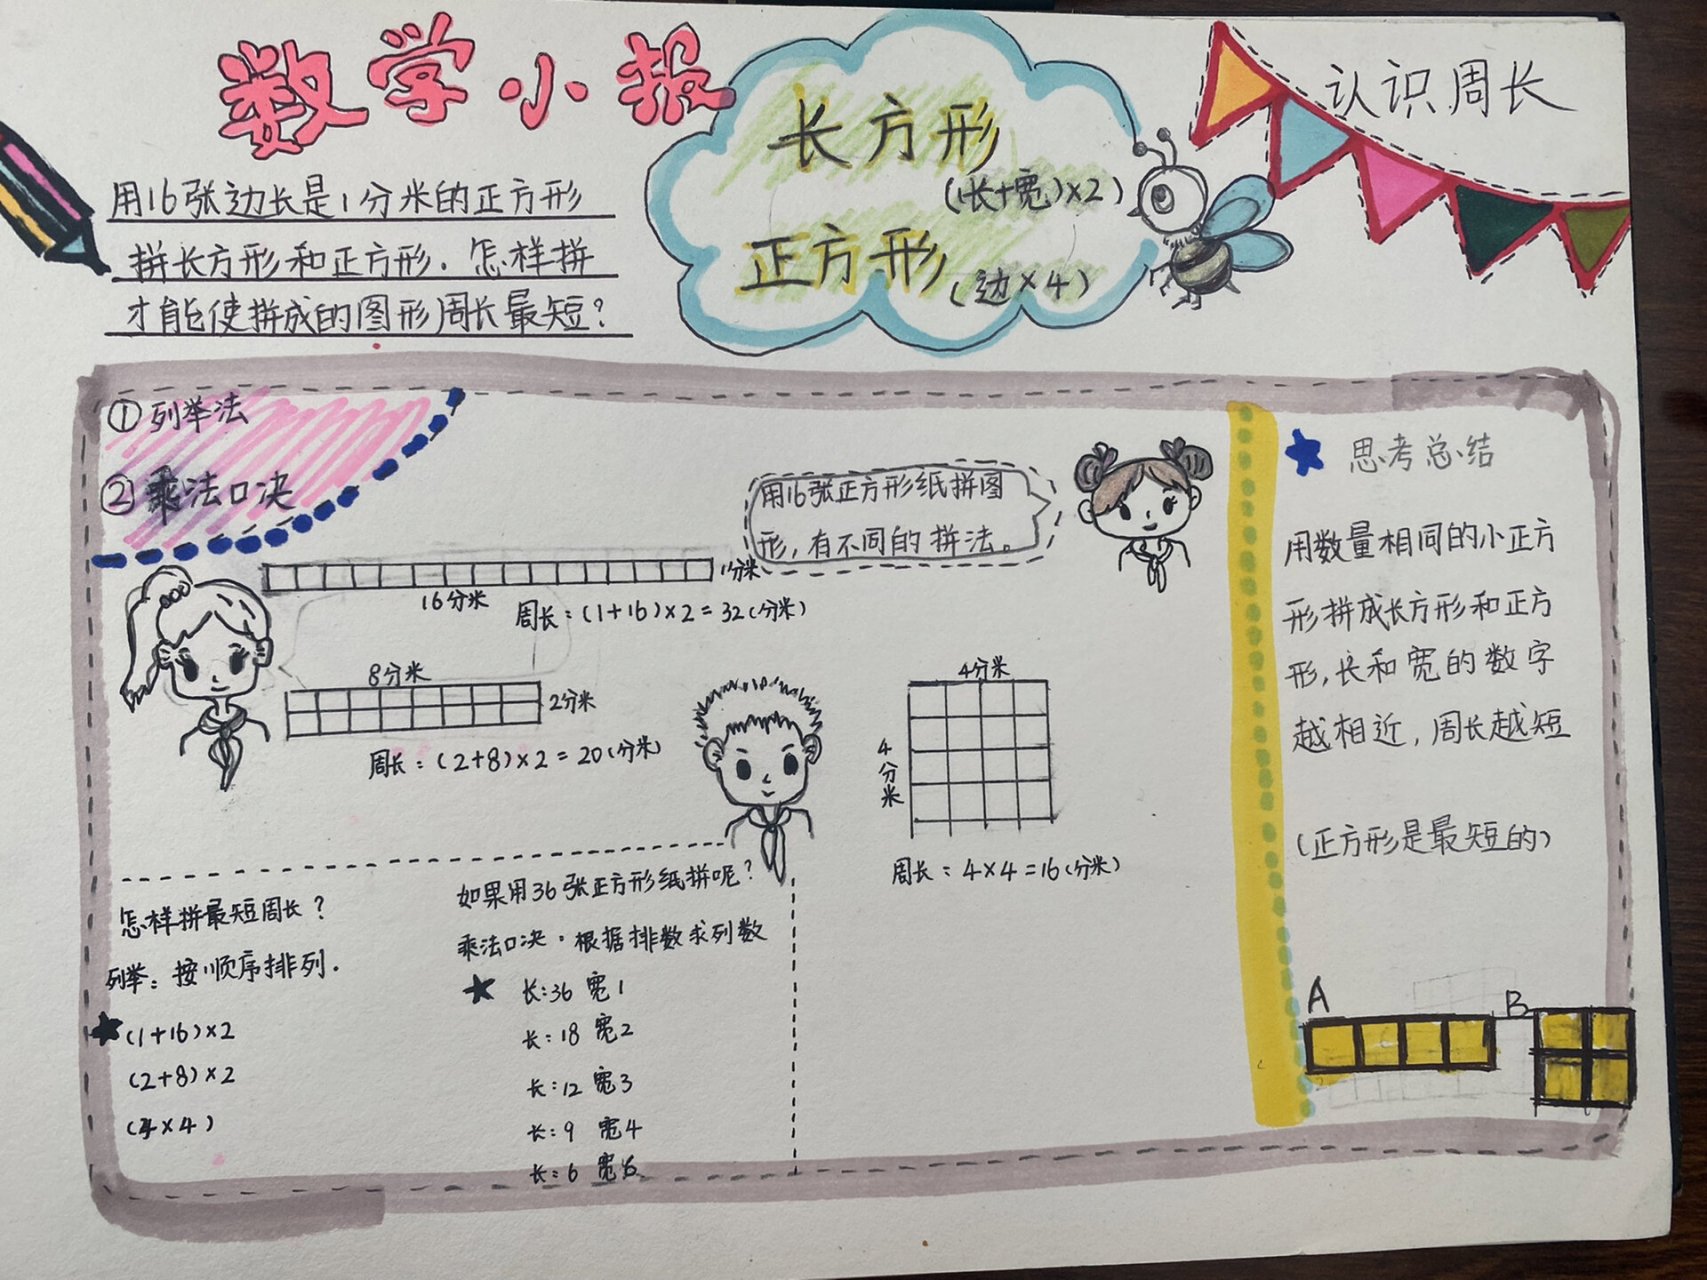 数学小报
认识周长
长方形
(长+宽)×2)
正方形
(边×4)
用16张边长是1分米的正方形
拼长方形和正方形.怎样拼
才能使拼成的图形周长最短?
①列举法
②乘法口决
用16张正方形纸拼图
形,有不同的拼法。
1分米
16分米
周长:(1+16)×2=32(分米)
8分米
2分米
周长:(2+8)×2=20(分米)
4分米
4分米
周长:4×4=16(分米)
怎样拼最短周长?
列举:按顺序排列.
(1+16)×2
(2+8)×2
(4×4)
如果用36张正方形纸拼呢?
乘法口决·根据排数求列数
长:36 宽1
长:18 宽2
长:12 宽3
长:9 宽4
长:6 宽6
思考总结
用数量相同的小正方
形拼成长方形和正方
形,长和宽的数字
越相近,周长越短
(正方形是最短的)
A
B